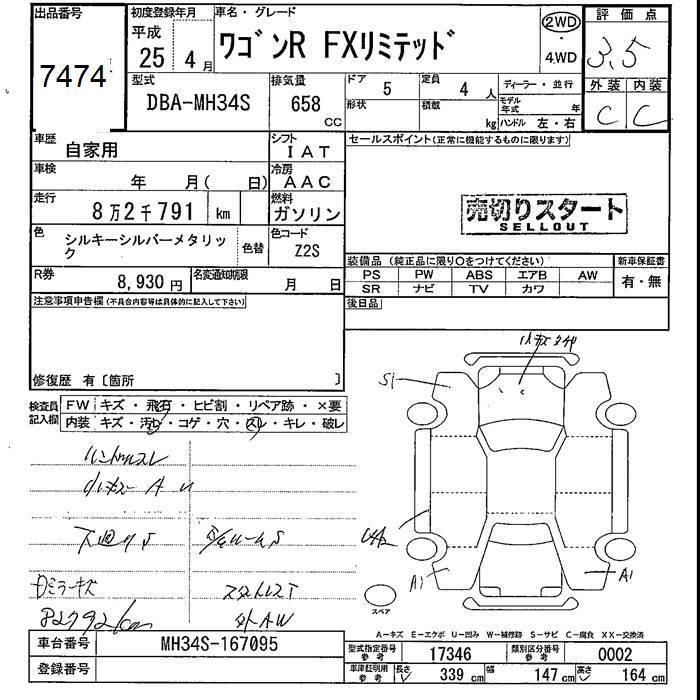 出品番号
7474
初度登録年月
平成
25 4月
車名・グレード
ワゴンR FXリミテッド
2WD
・
4WD
評価点
3.5
外装 内装
C C
型式
DBA-MH34S
排気量
658
CC
ドア 5
形状
定員 4 人
積載 kg
ディーラー・並行
モデル年式 年
ハンドル 左・右
車歴
自家用
シフト
IAT
車検
年 月( 日)
冷房
AAC
走行
8万2千791 km
燃料
ガソリン
色
シルキーシルバーメタリック
色替
色コード
Z2S
R券
8,930 円
名変通知期限
月 日
セールスポイント(正常に機能するものに限ります)
売切りスタート
SELLOUT
装備品(純正品に限り○をつけてください)
PS PW ABS エアB AW
SR ナビ TV カワ
新車保証書
有・無
後日品
注意事項申告欄(不具合内容等は具体的に記入して下さい)
修復歴 有〔箇所 〕
検査員
記入欄
FW キズ・飛石・ヒビ割・リペア跡・×要
内装 キズ・汚レ・コゲ・穴・スレ・キレ・破レ
ハンドルスレ
小キズ A U
下廻りS
Dミラーキズ
スタットレスT
外AW
S1
A1
A1
スペア
A−キズ E−エクボ U−凹み W−補修跡 S−サビ C−腐食 XX−交換済
車台番号
MH34S-167095
登録番号
型式指定番号
参考
17346
類別区分番号
参考
0002
車庫証明用
参考
長さ 339 cm
幅 147 cm
高さ 164 cm